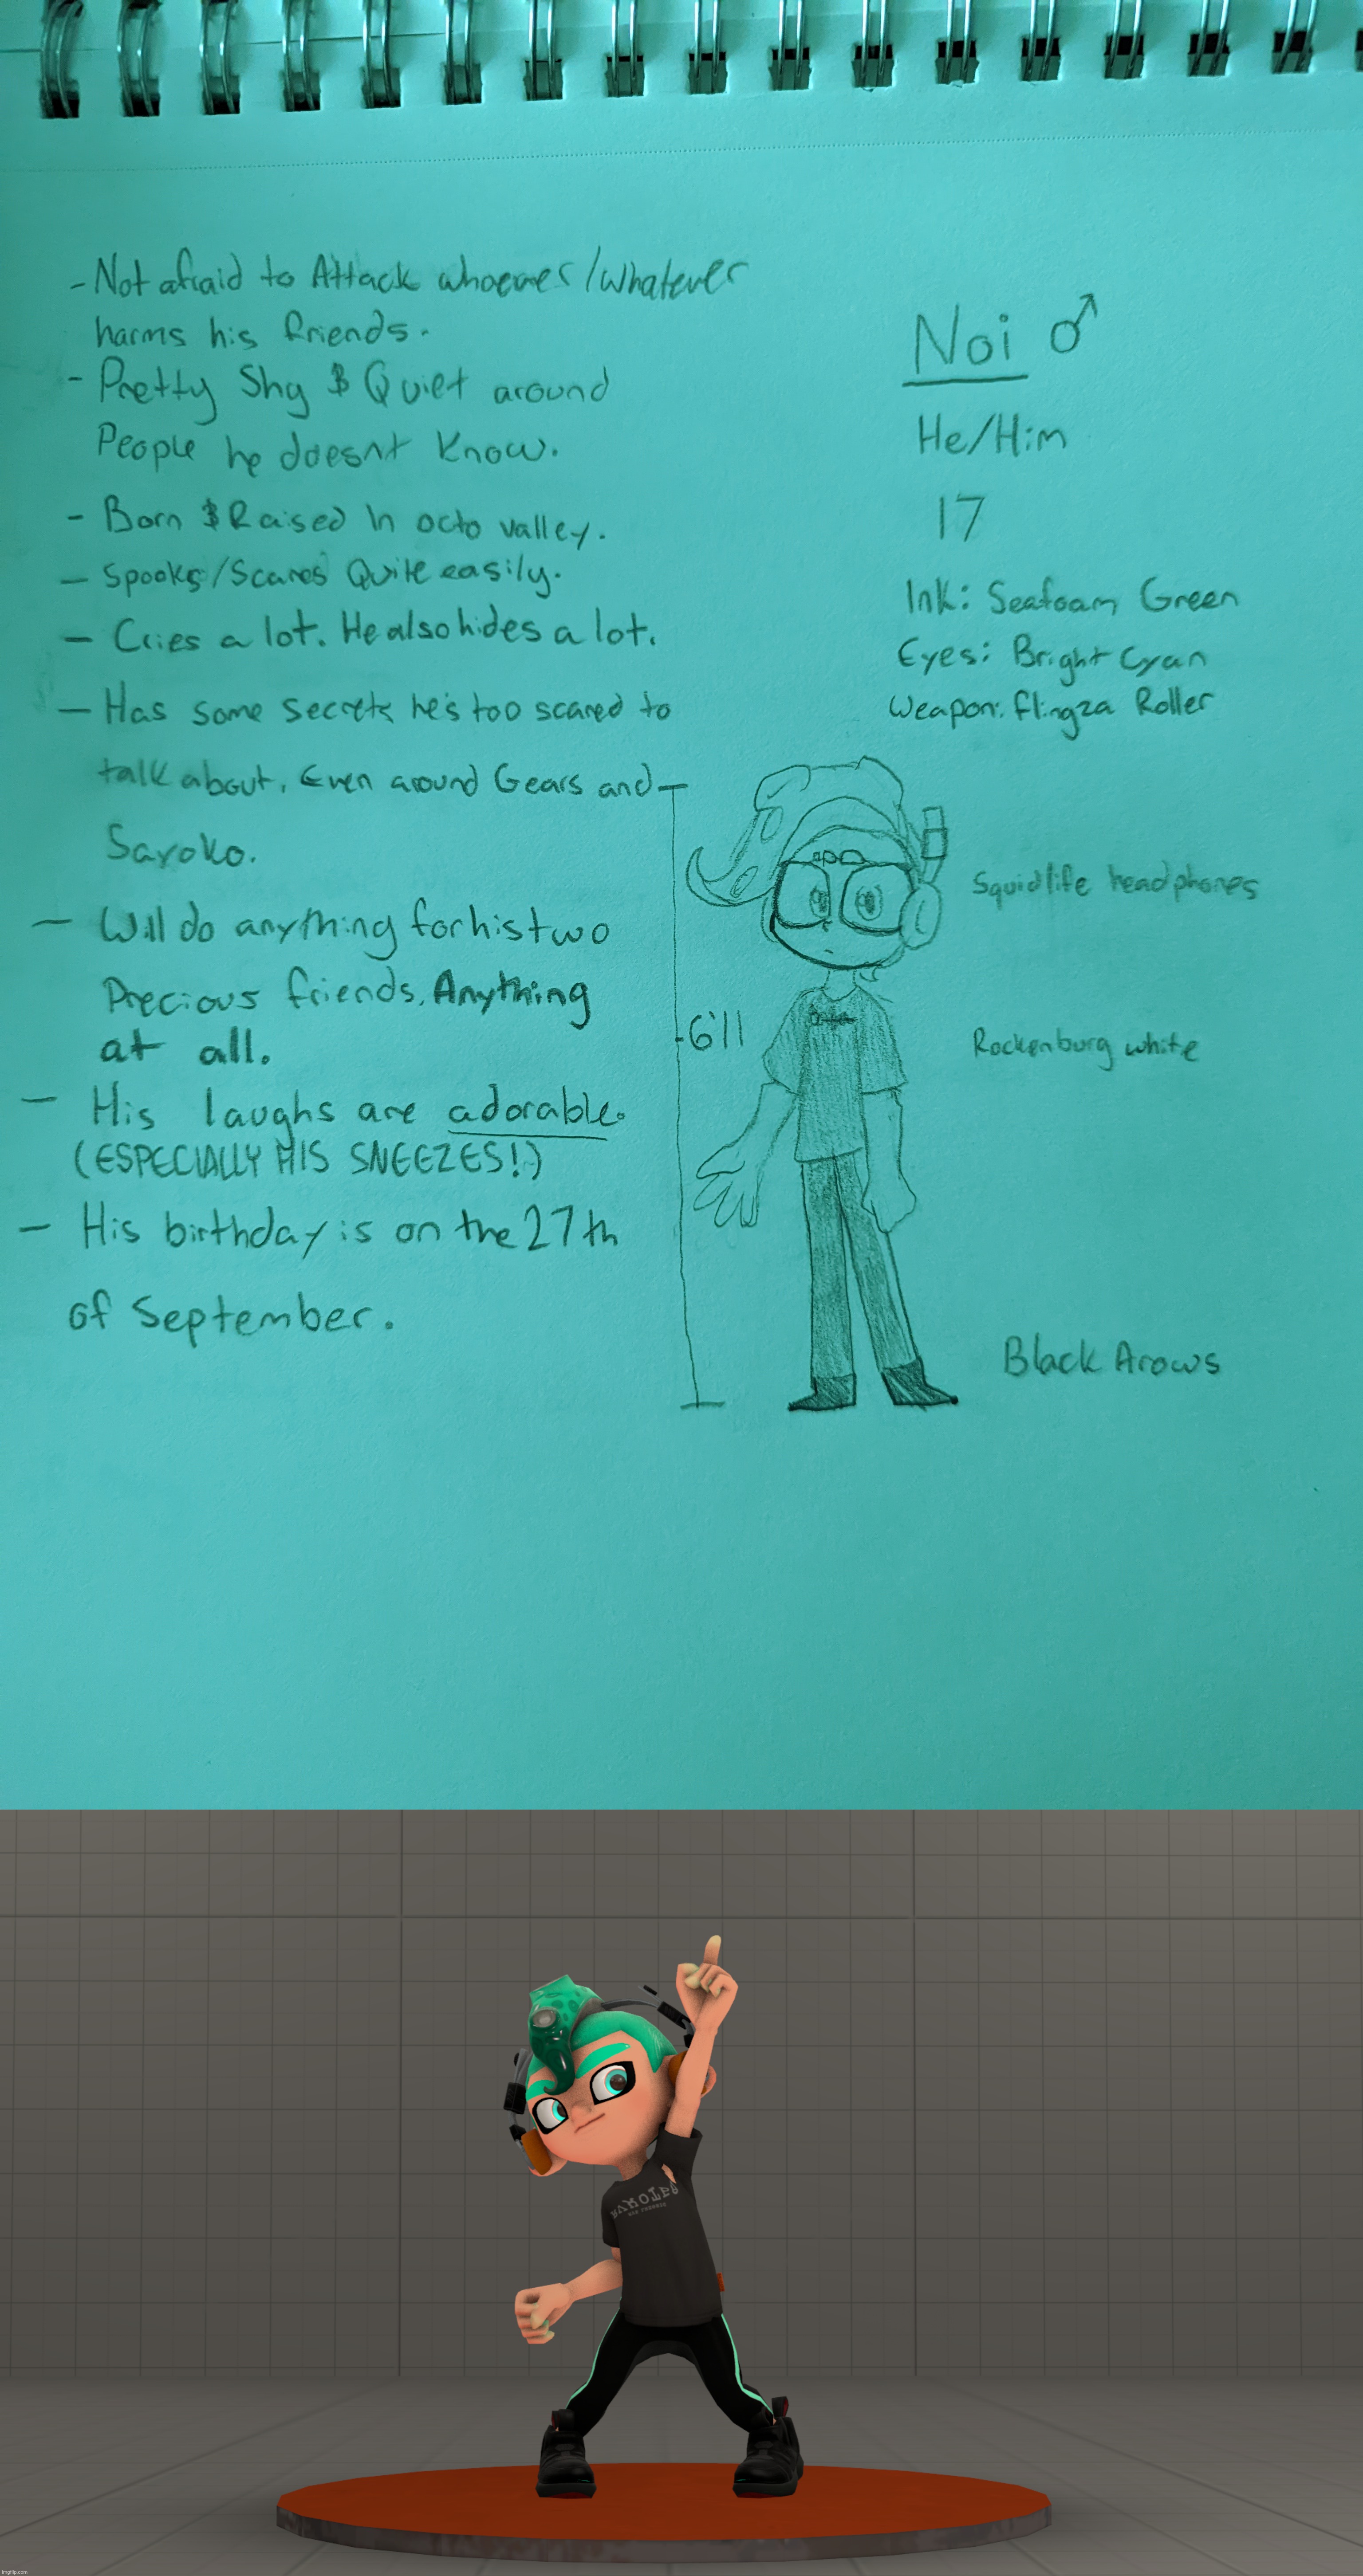 - Not afraid to Attack whoever/whatever
harms his friends.
- Pretty Shy & Quiet around
People he doesnt Know.
- Born & Raised In octo valley.
- Spooks/Scares Quite easily.
- Cries a lot. He also hides a lot.
- Has some secrets he's too scared to
talk about, Even around Gears and
Sayoko.
- Will do anything for his two
Precious friends. Anything
at all.
- His laughs are adorable.
(ESPECIALLY HIS SNEEZES!)
- His birthday is on the 27th
of September.
Noi ♂
He/Him
17
Ink: Seafoam Green
Eyes: Bright Cyan
Weapon: Flingza Roller
Squidlife headphones
6'11
Rockenburg white
Black Arows
imgflip.com